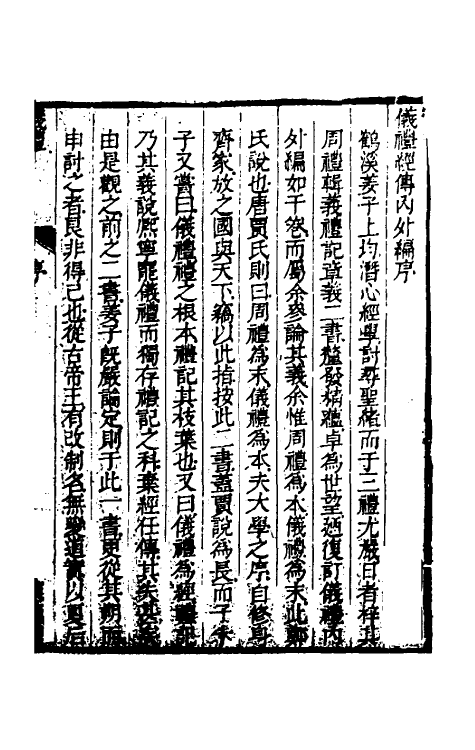 儀禮經傳內外編序
鶴溪姜子上均潛心經學討尋聖緒而于三禮尤嚴日者梓其
周禮輯義禮記章義二書釐發精蘊卓為世望迺復訂儀禮內
外編如干卷而屬余參論其義余惟周禮為本儀禮為末此鄭
氏說也唐賈氏則曰周禮為末儀禮為本夫大學之序自修身
齊家放之國與天下竊以此指按此二書蓋賈說為長而子朱
子又嘗曰儀禮禮之根本禮記其枝葉也又曰儀禮為經禮記
乃其義說熙寧罷儀禮而獨存禮記之科棄經任傳其失甚矣
由是觀之前之二書姜子既嚴論定則于此一書更從其朔而
申討之者良非得已也從古帝王有改制名無變道實以夏后